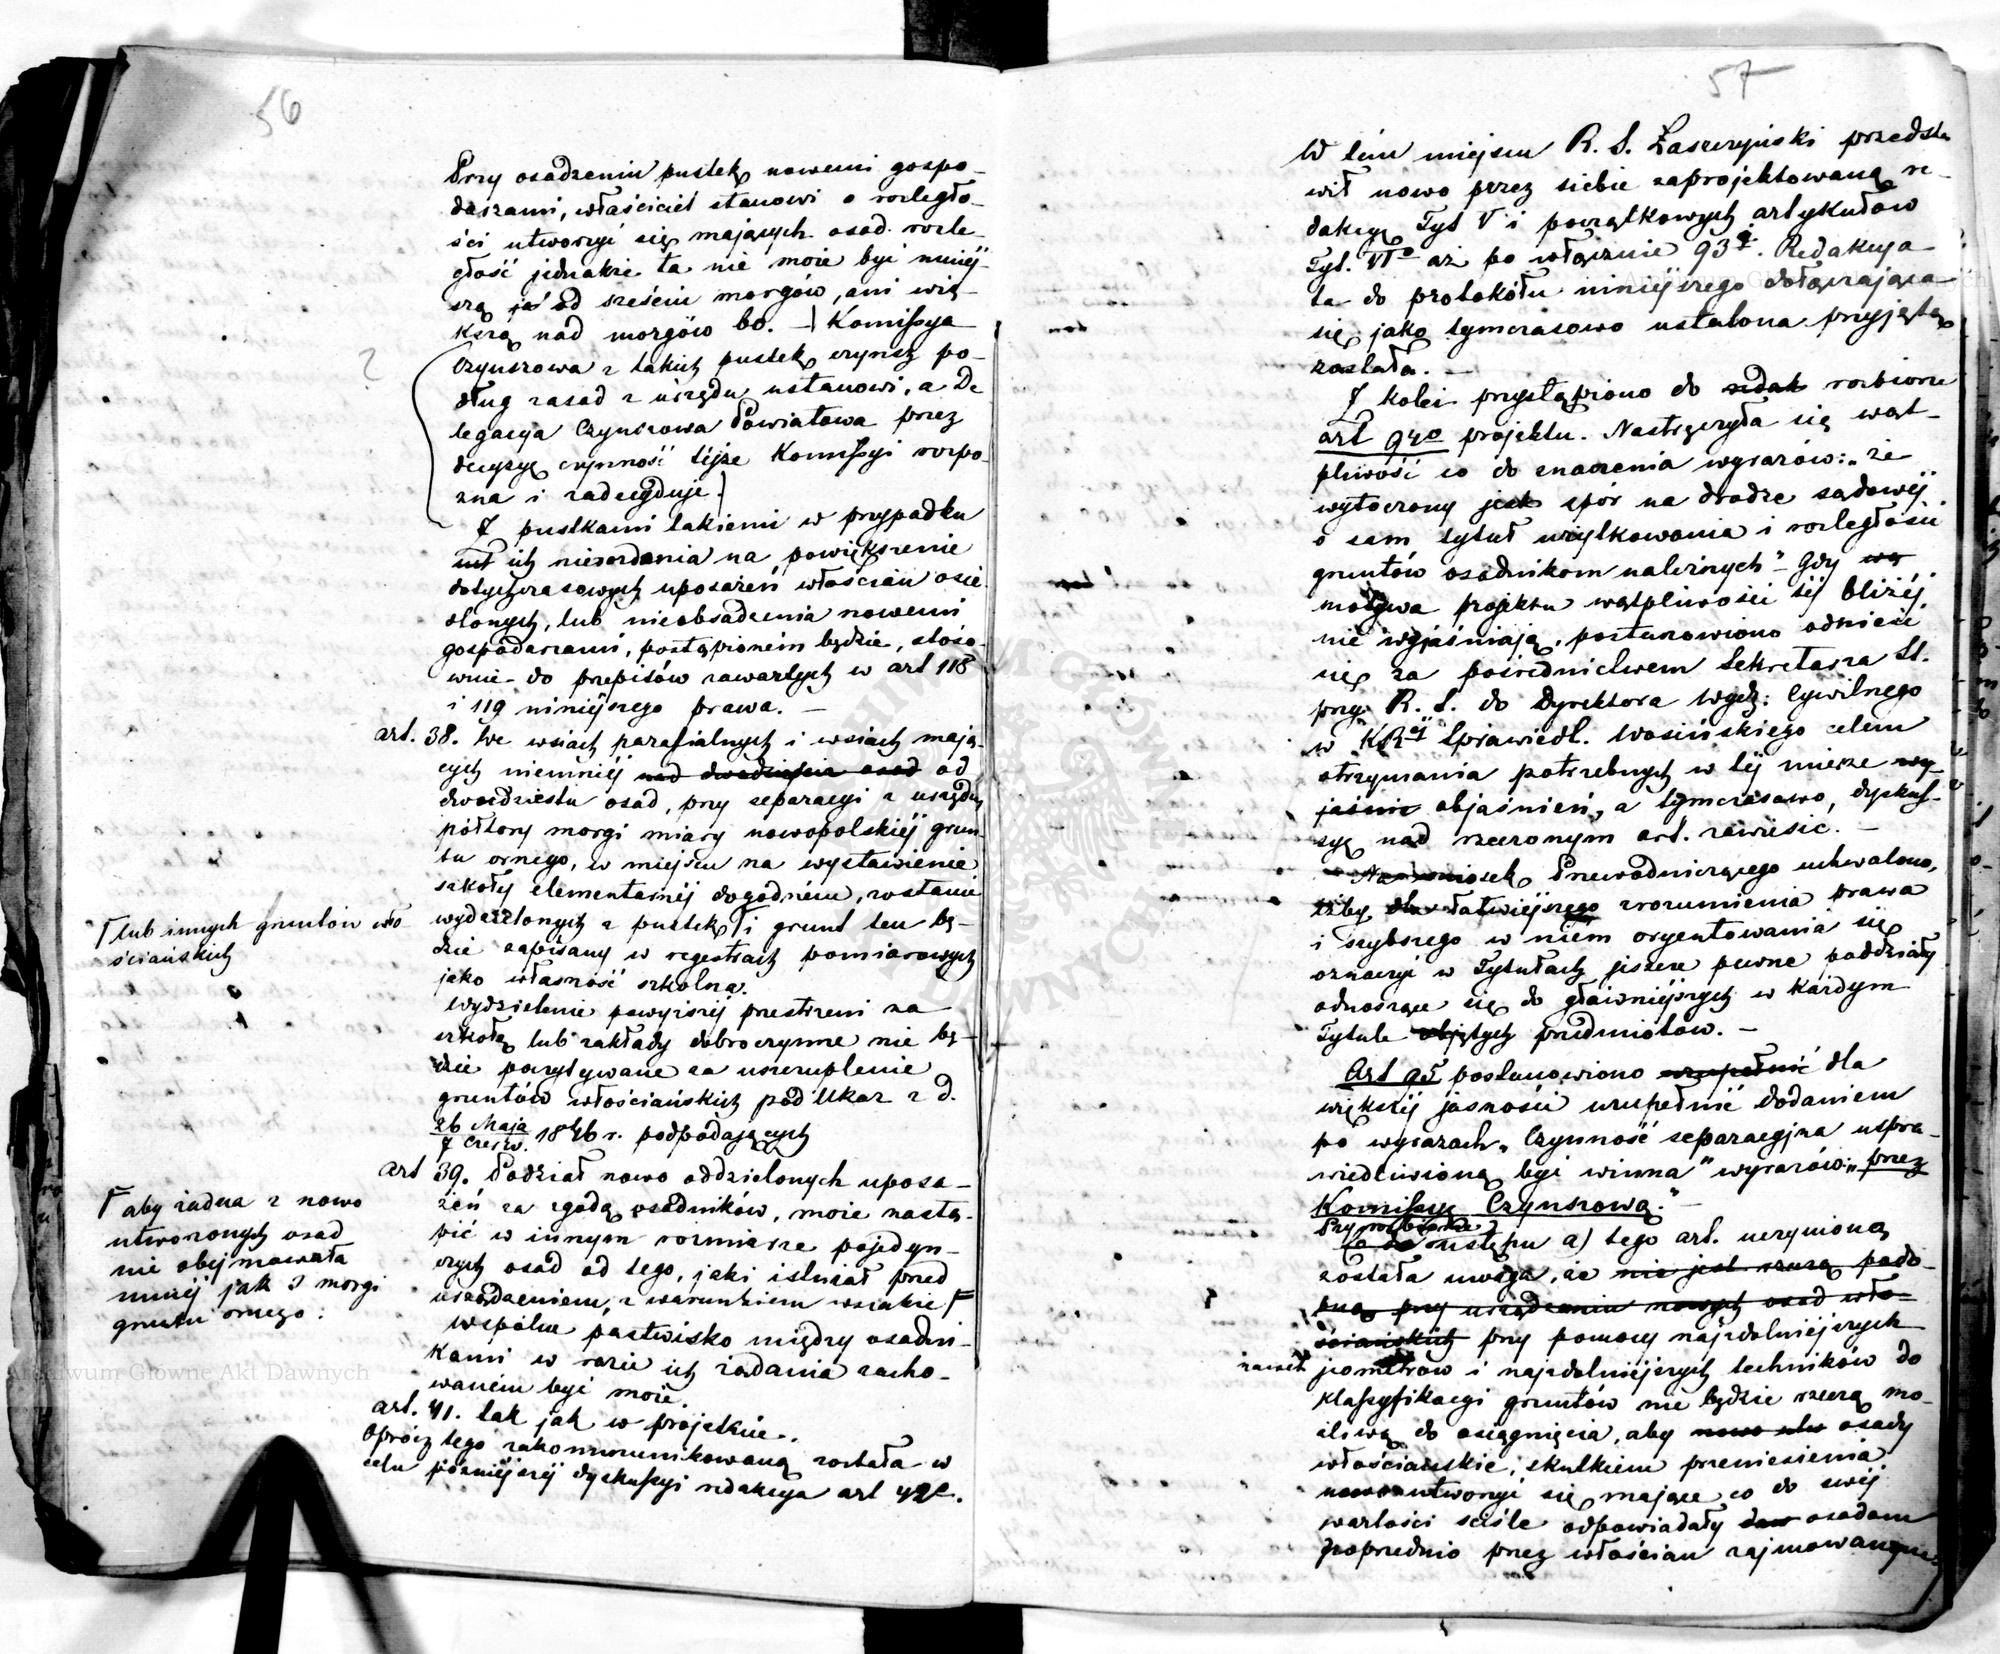 56
Przy osadzeniu pustek nowemi gospo-
darzami, właściciel stanowi o rozległo-
ści utworzyć się mających osad. rozle-
głość jednakże ta nie może być mniéj-
szą jak od sześciu morgów, ani wię-
kszą nad morgów 60. — Komissya
Czynszowa z takich pustek czynsz po-
dług zasad z urzędu ustanowi, a De
legacya Czynszowa Powiatowa przez
decyzyę czynność téjże Komissyi rozpo-
zna i zadecyduje.
Z pustkami takiemi w przypadku
ich nierozdania na powiększenie
dotychczasowych uposażeń włościan osie
dlonych, lub nieobsadzenia nowemi
gospodarzami, postąpioném będzie, stoso-
wnie do przepisów zawartych w art 118
i 119 niniéjszego prawa. —
art. 38. We wsiach parafialnych i wsiach mają-
cych niemniéj nad dwadzieścia osad od
dwudziestu osad, przy separacyi z urzędu
półtory morgi miary nowopolskiéj grun-
tu ornego, w miejscu na wystawienie
szkoły elementarnéj dogodném, zostanie
wydzielonych z pustek Γ i grunt ten bę-
dzie zapisany w regestrach pomiarowych
jako własność szkolna.
Γ lub innych gruntów wło
ściańskich
Wydzielenie powyższéj przestrzeni na
szkołę lub zakłady dobroczynne nie bę-
dzie poczytywane za uszczuplenie
gruntów włościańskich pod Ukaz z d.
26 Maja
7 Czerw. 1846 r. podpadających
art 39. Podział nowo oddzielonych uposa-
żeń za zgodą osadników, może nastą-
pić w innym rozmiarze pojedyn-
czych osad od tego, jaki istniał przed
urządzeniem, z warunkiem wszakże Γ
Γ aby żadna z nowo
utworzonych osad
nie obejmowała
mniéj jak 3 morgi
gruntu ornego.
Wspólne pastwisko między osadni-
kami w razie ich żądania zacho-
waném być może.
art. 41. tak jak w projekcie.
Oprócz tego zakommunikowaną została w
celu późniéjszéj dyskussyi redakcya art 42go.
57
W tém miejscu R. S. Łaszczyński przedsta
wił nowo przez siebie zaprojektowaną re-
dakcyę Tyt V i początkowych artykułów
Tyt. VIo aż po włącznie 93ci. Redakcya
ta do protokółu niniéjszego dołączająca
się jako tymczasowo ustalona przyjętą
została. —
Z kolei przystąpiono do redak rozbioru
art 94o projektu. Nastręczyła się wąt-
pliwość co do znaczenia wyrazów: „że
wytoczony jest spór na drodze sądowéj
o sam tytuł użytkowania i rozległości
gruntów osadnikom należnych" – Gdy
motywa projektu wątpliwości téj bliżéj
nie wyjaśniają, postanowiono odnieść
się za pośrednictwem Sekretarza St.
przy R. S. do Dyrektora Wydz: Cywilnego
w KRéj Sprawiedl. Wosińskiego celem
otrzymania potrzebnych w téj mierze wy-
jaśnie objaśnień, a tymczasowo, dyskus-
syę nad rzeczonym art. zawiesić. —
Na wniosek Przewodniczącego uchwalono,
iżby dla łatwiéjszego zrozumienia prawa
i szybszego w niém oryentowania się
oznaczyć w Tytułach jeszcze pewne poddziały
odnoszące się do głównéjszych w każdym
Tytule objętych przedmiotów. —
Art 95 postanowiono uzupełnić dla
większéj jasności uzupełnić dodaniem
po wyrazach „Czynność separacyjna uspra-
wiedliwioną być winna" wyrazów: „przez
Komissyę Czynszową." —
Przy rozbiorze
Co do ustępu a) tego art. uczynioną
została uwaga, że nie jest rzeczą podo-
bną przy urządzaniu nowych osad wło-
ściańskich przy pomocy najzdolniéjszych
nawet jeometrów i najzdolniéjszych techników do
klassyfikacyi gruntów nie będzie rzeczą mo-
żliwą do osiągnięcia, aby nowo utw osady
włościańskie, skutkiem przeniesienia
nowo utworzyć się mające co do swéj
wartości ściśle odpowiadały osadom
poprzednio przez włościan zajmowanym